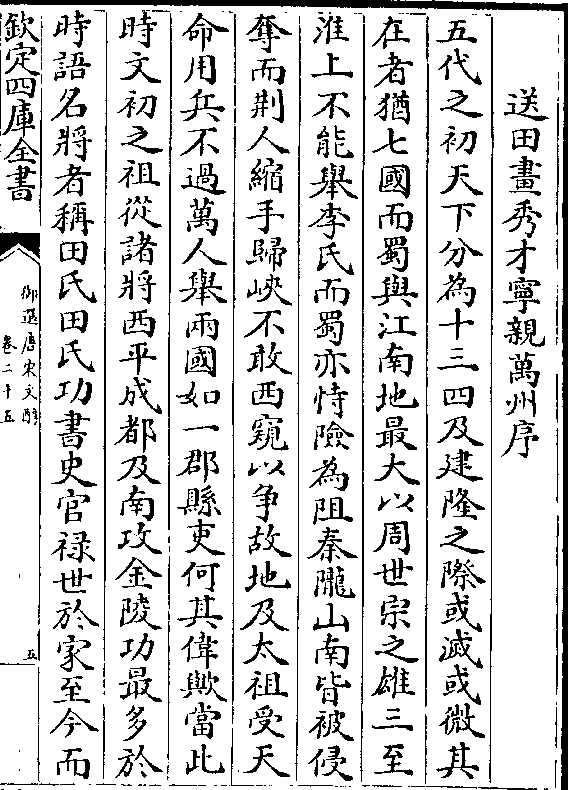 送田畫秀才寧親萬州序
五代之初天下分為十三四及建隆之際或滅或微其
在者猶七國而蜀與江南地最大以周世宗之雄三至
淮上不能舉李氏而蜀亦恃險為阻秦隴山南皆被侵
奪而荆人縮手歸峽不敢西窺以争故地及太祖受天
命用兵不過萬人舉兩國如一郡縣吏何其偉歟當此
時文初之祖從諸將西平成都及南攻金陵功最多於
時語名將者稱田氏田氏功書史官禄世於家至今而
欽定四庫全書
御選唐宋文醇
卷二十五
五